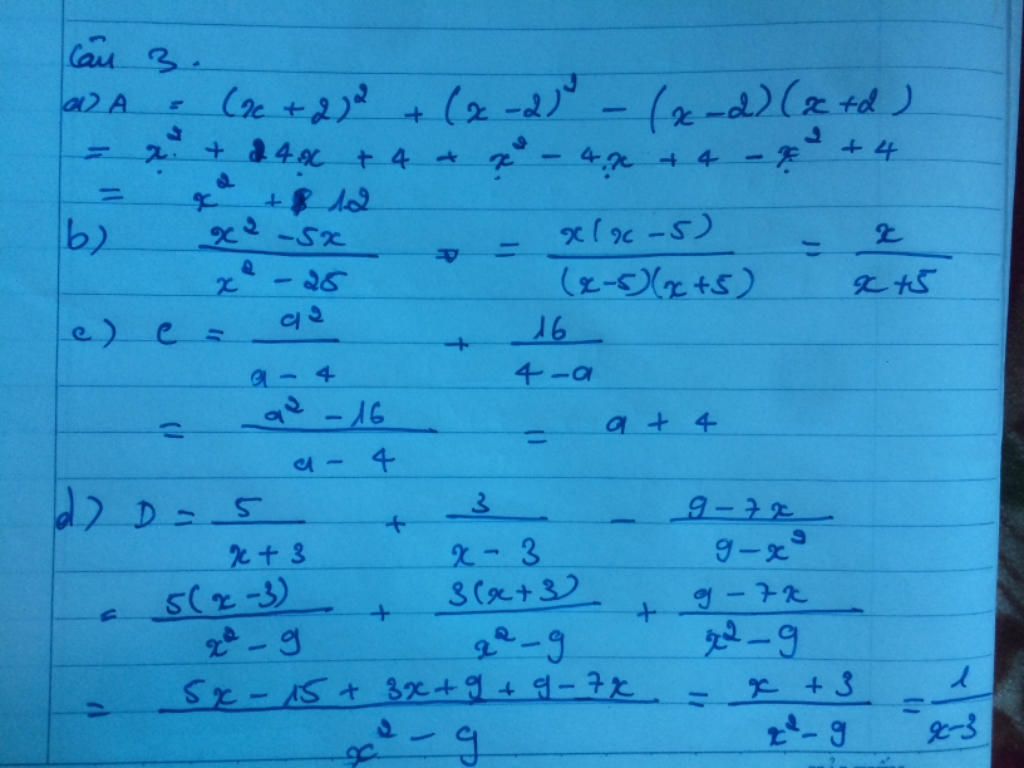 Câu 3.
a) A = (x + 2)² + (x - 2)² - (x - 2)(x + 2)
= x² + 4x + 4 + x² - 4x + 4 - x² + 4
= x² + 12
b) (x² - 5x)/(x² - 25) = x(x - 5)/((x - 5)(x + 5)) = x/(x + 5)
c) C = a²/(a - 4) + 16/(4 - a)
= (a² - 16)/(a - 4) = a + 4
d) D = 5/(x + 3) + 3/(x - 3) - (9 - 7x)/(9 - x²)
= 5(x - 3)/(x² - 9) + 3(x + 3)/(x² - 9) + (9 - 7x)/(x² - 9)
= (5x - 15 + 3x + 9 + 9 - 7x)/(x² - 9) = (x + 3)/(x² - 9) = 1/(x - 3)